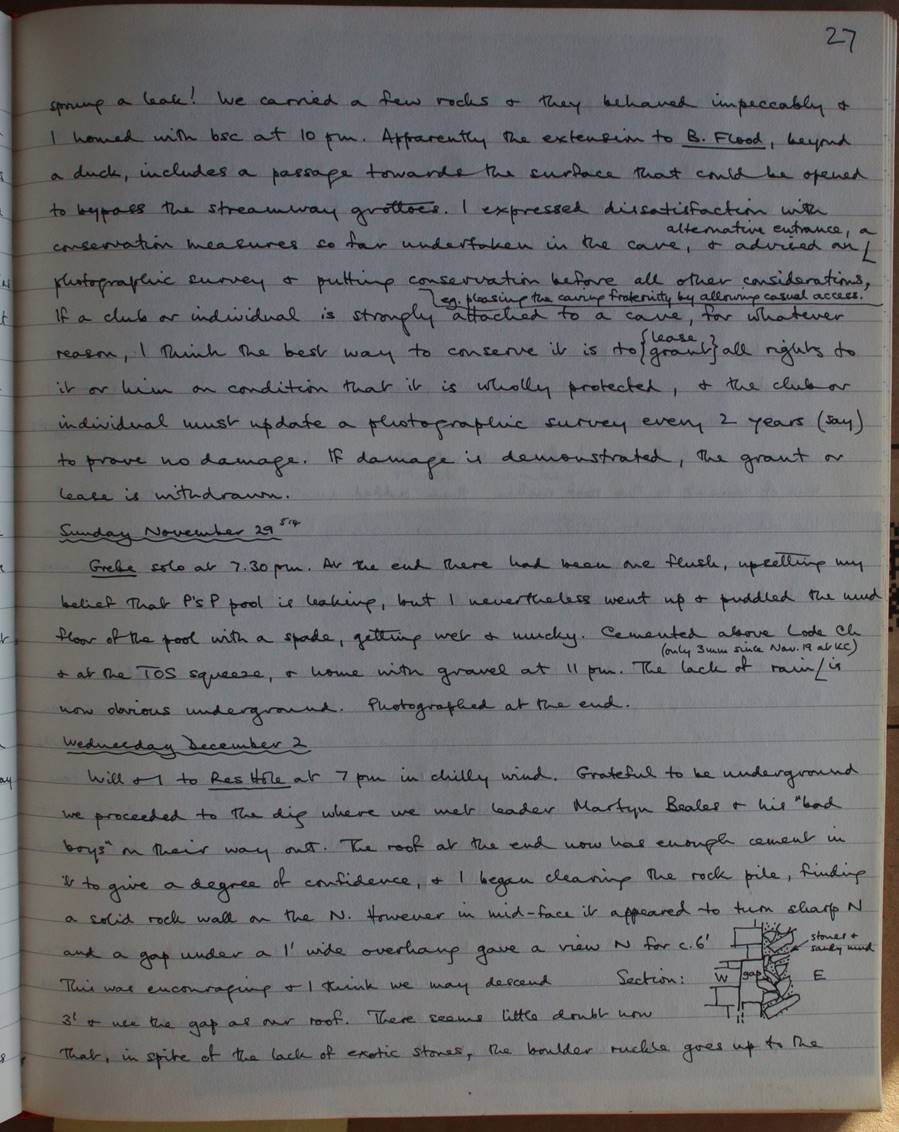 27
sprung a leak! We carried a few rocks & they behaved impeccably &
I homed with bsc at 10 pm. Apparently the extension to B. Flood, beyond
a duck, includes a passage towards the surface that could be opened
to bypass the streamway grottoes. I expressed dissatisfaction with
alternative entrance, a
conservation measures so far undertaken in the cave, & advised an
photographic survey & putting conservation before all other considerations,
eg. pleasing the caving fraternity by allowing casual access.
If a club or individual is strongly attached to a cave, for whatever
reason, I think the best way to conserve it is to {lease grant} all rights to
it or him on condition that it is wholly protected, & the club or
individual must update a photographic survey every 2 years (say)
to prove no damage. If damage is demonstrated, the grant or
lease is withdrawn.
Sunday November 29
Grebe solo at 7.30 pm. At the end there had been one flush, upsetting my
belief that P's P pool is leaking, but I nevertheless went up & puddled the mud
floor of the pool with a spade, getting wet & mucky. Cemented above Lode Ch
(only 3mm since Nov. 19 at KC)
& at the TOS squeeze, & home with gravel at 11 pm. The lack of rain is
now obvious underground. Photographed at the end.
Wednesday December 2
Will & I to Res Hole at 7 pm in chilly wind. Grateful to be underground
we proceeded to the dig where we met leader Martyn Beales & his "bad
boys" on their way out. The roof at the end now has enough cement in
it to give a degree of confidence, & I began clearing the rock pile, finding
a solid rock wall on the N. However in mid-face it appeared to turn sharp N
and a gap under a 1' wide overhang gave a view N for c.6'
stones &
sandy mud
This was encouraging & I think we may descend
Section:
W
gap
E
3' & use the gap as our roof. There seems little doubt now
that, in spite of the lack of exotic stones, the boulder ruckle goes up to the